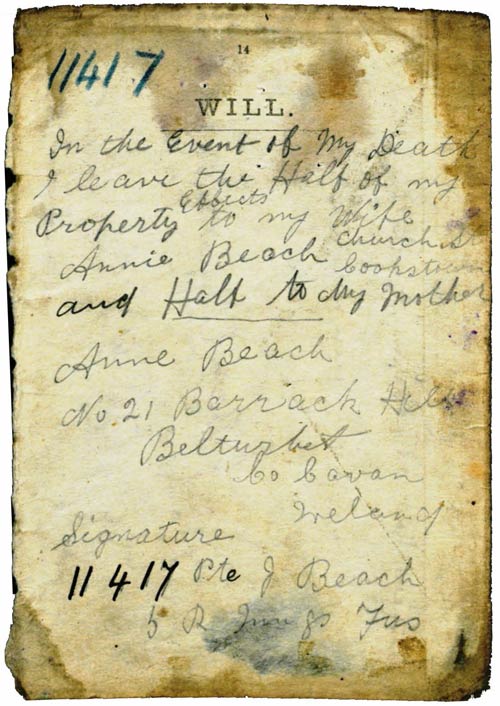 14
11417
WILL.
In the Event of My Death
I leave the Half of my
Effects
Property to my Wife
Annie Beach Church St
Cookstown
and Half to My Mother
Anne Beach
No. 21 Barrack Hill
Belturbet
Co Cavan
Ireland
Signature
11417 Pte J Beach
5 R Innis Fus